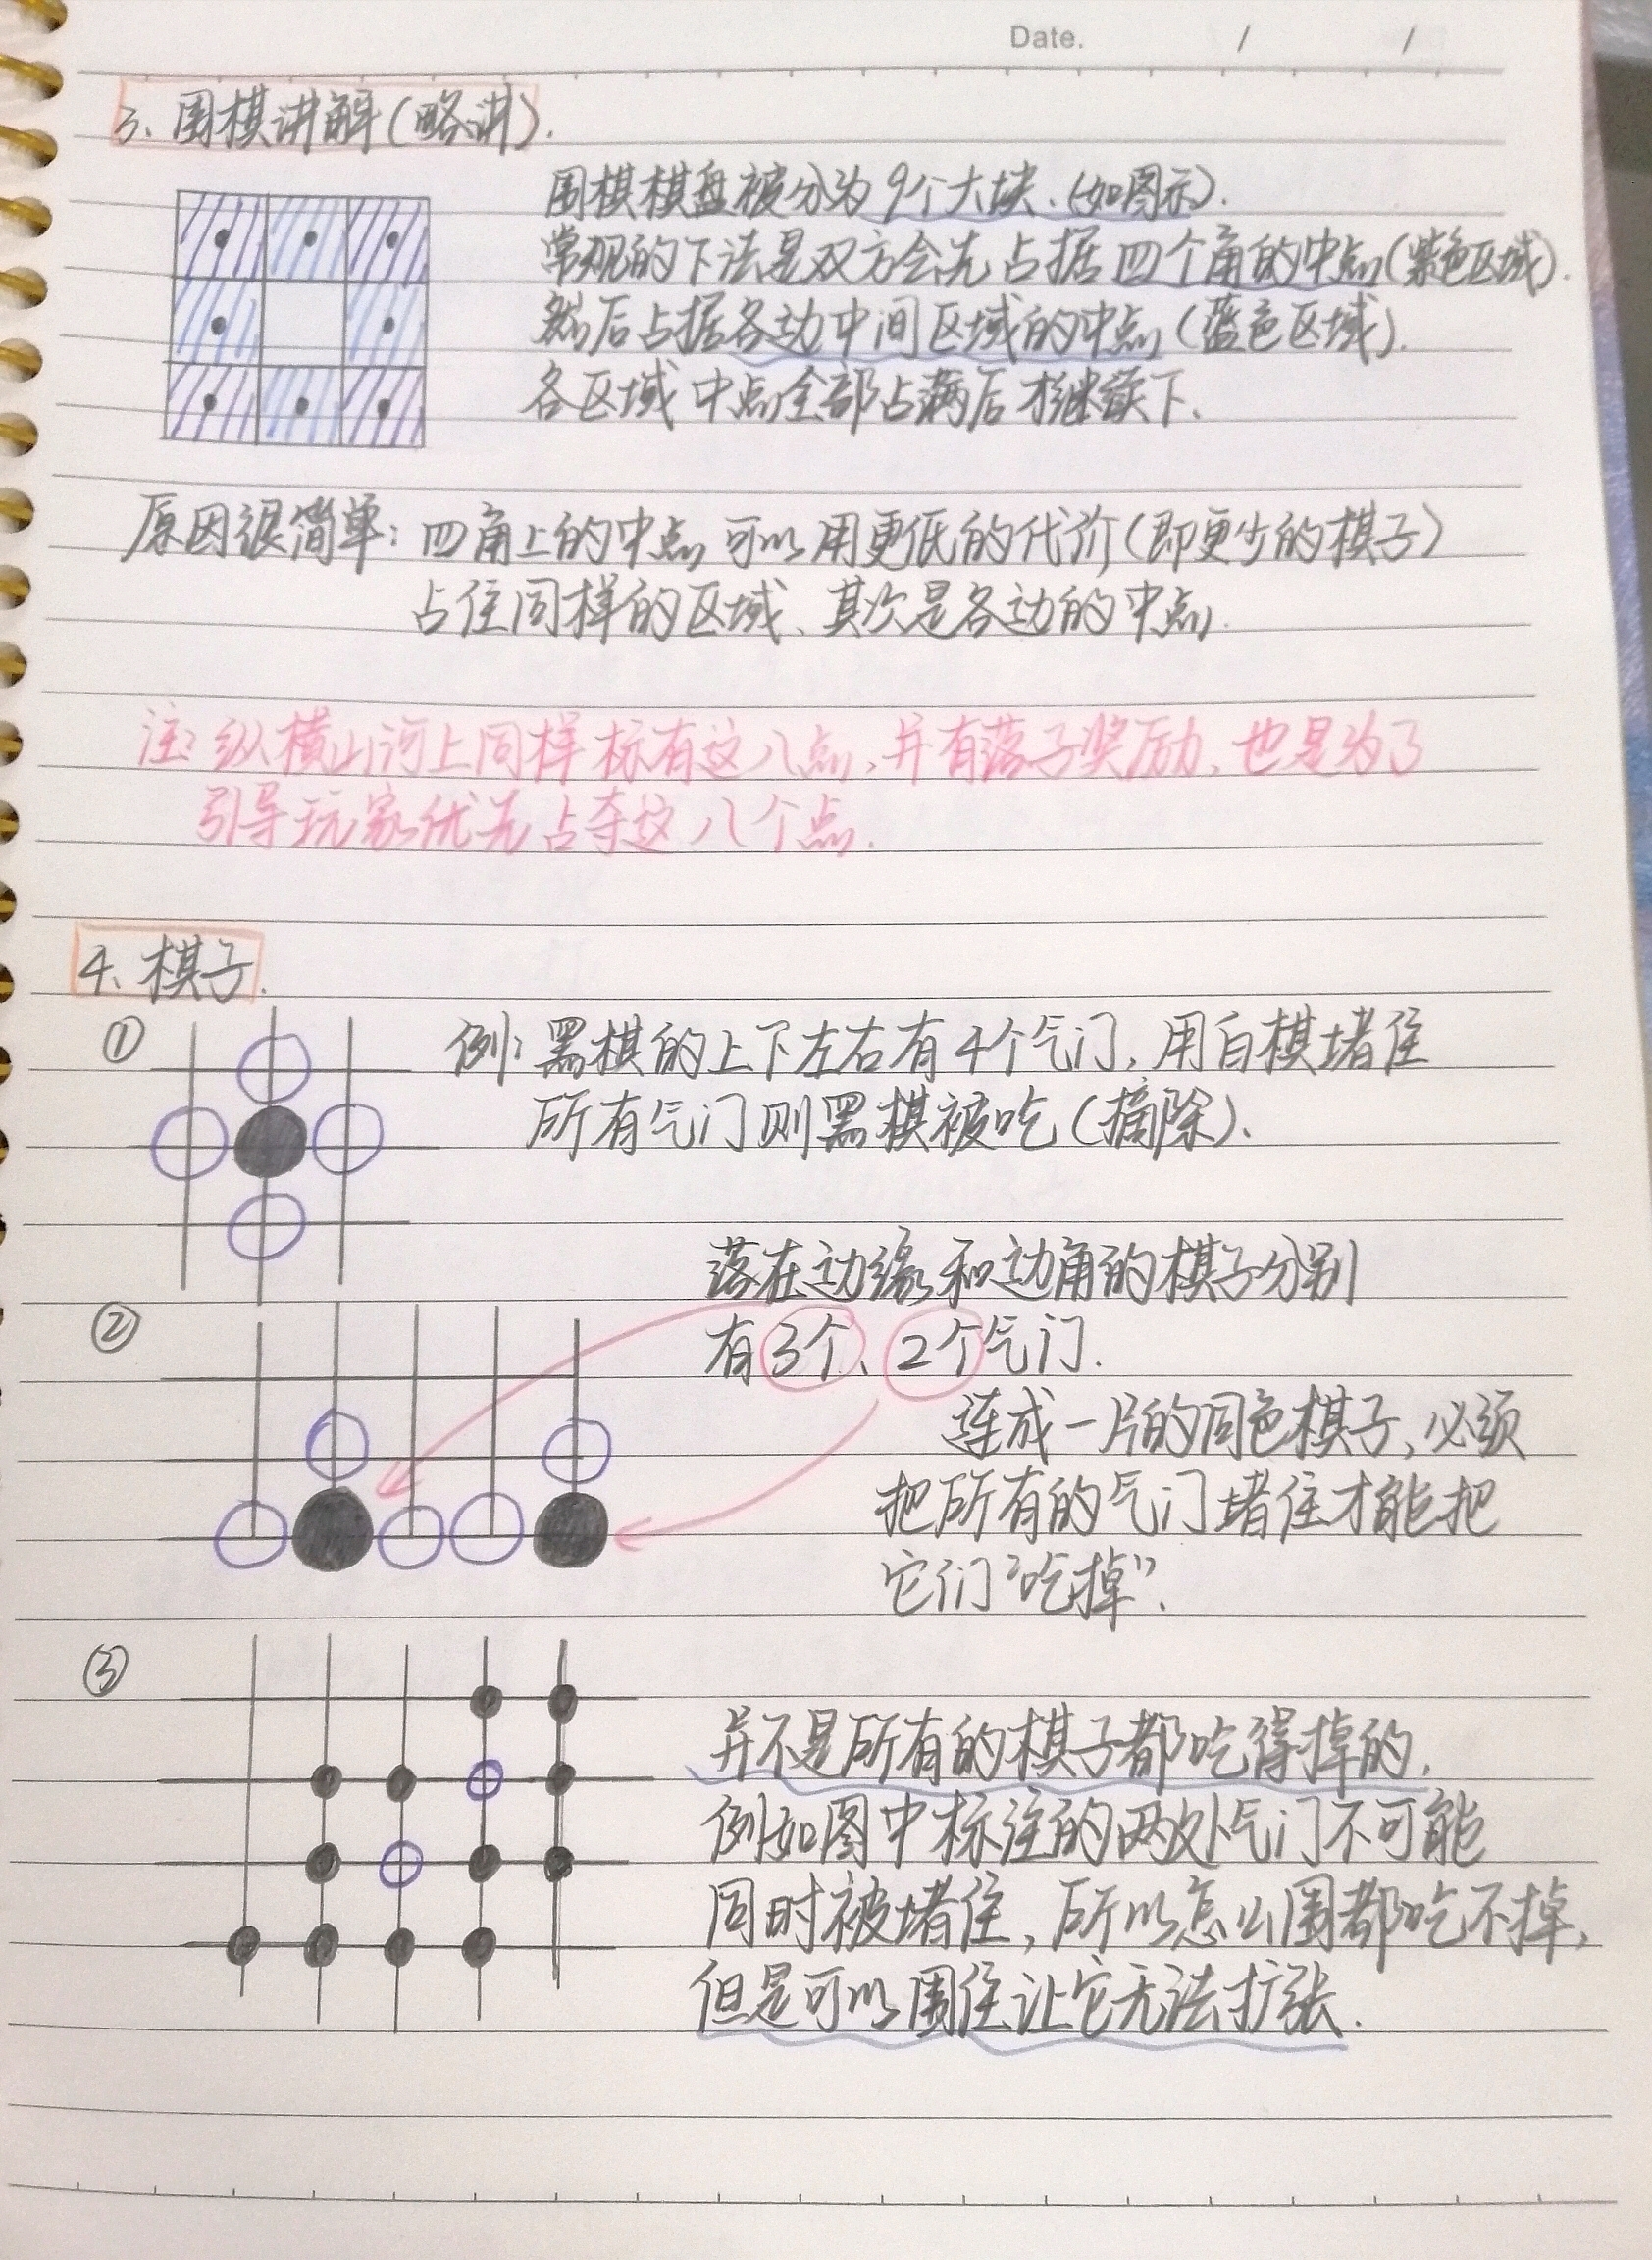 Date. / /
3、围棋讲解(略讲).
围棋棋盘被分为9个大块.(如图示).
常规的下法是双方会先占据四个角的中点(紫色区域).
然后占据各边中间区域的中点(蓝色区域).
各区域中点全部占满后才继续下.
原因很简单:四角上的中点可以用更低的代价(即更少的棋子)
占住同样的区域、其次是各边的中点.
注:纵横山河上同样标有这八点,并有落子奖励,也是为了
引导玩家优先占夺这八个点.
4、棋子.
①
例:黑棋的上下左右有4个气门,用白棋堵住
所有气门则黑棋被吃(摘除).
②
落在边缘和边角的棋子分别
有3个、2个气门.
连成一片的同色棋子,必须
把所有的气门堵住才能把
它们"吃掉".
③
并不是所有的棋子都吃得掉的.
例如图中标注的两处气门不可能
同时被堵住,所以怎么围都吃不掉,
但是可以围住让它无法扩张.